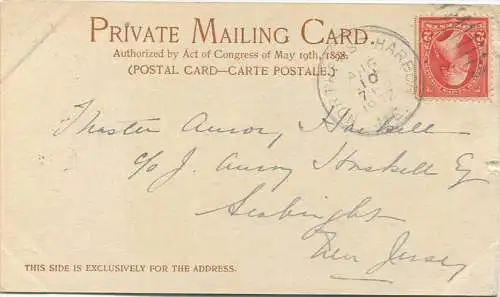 PRIVATE MAILING CARD.
Authorized by Act of Congress of May 19th, 1898.
(POSTAL CARD—CARTE POSTALE.)
HARBOR
AUG
8
2 2
Master Amory Haskell
c/o J. Amory Haskell Esq
Seabright
New Jersey
THIS SIDE IS EXCLUSIVELY FOR THE ADDRESS.